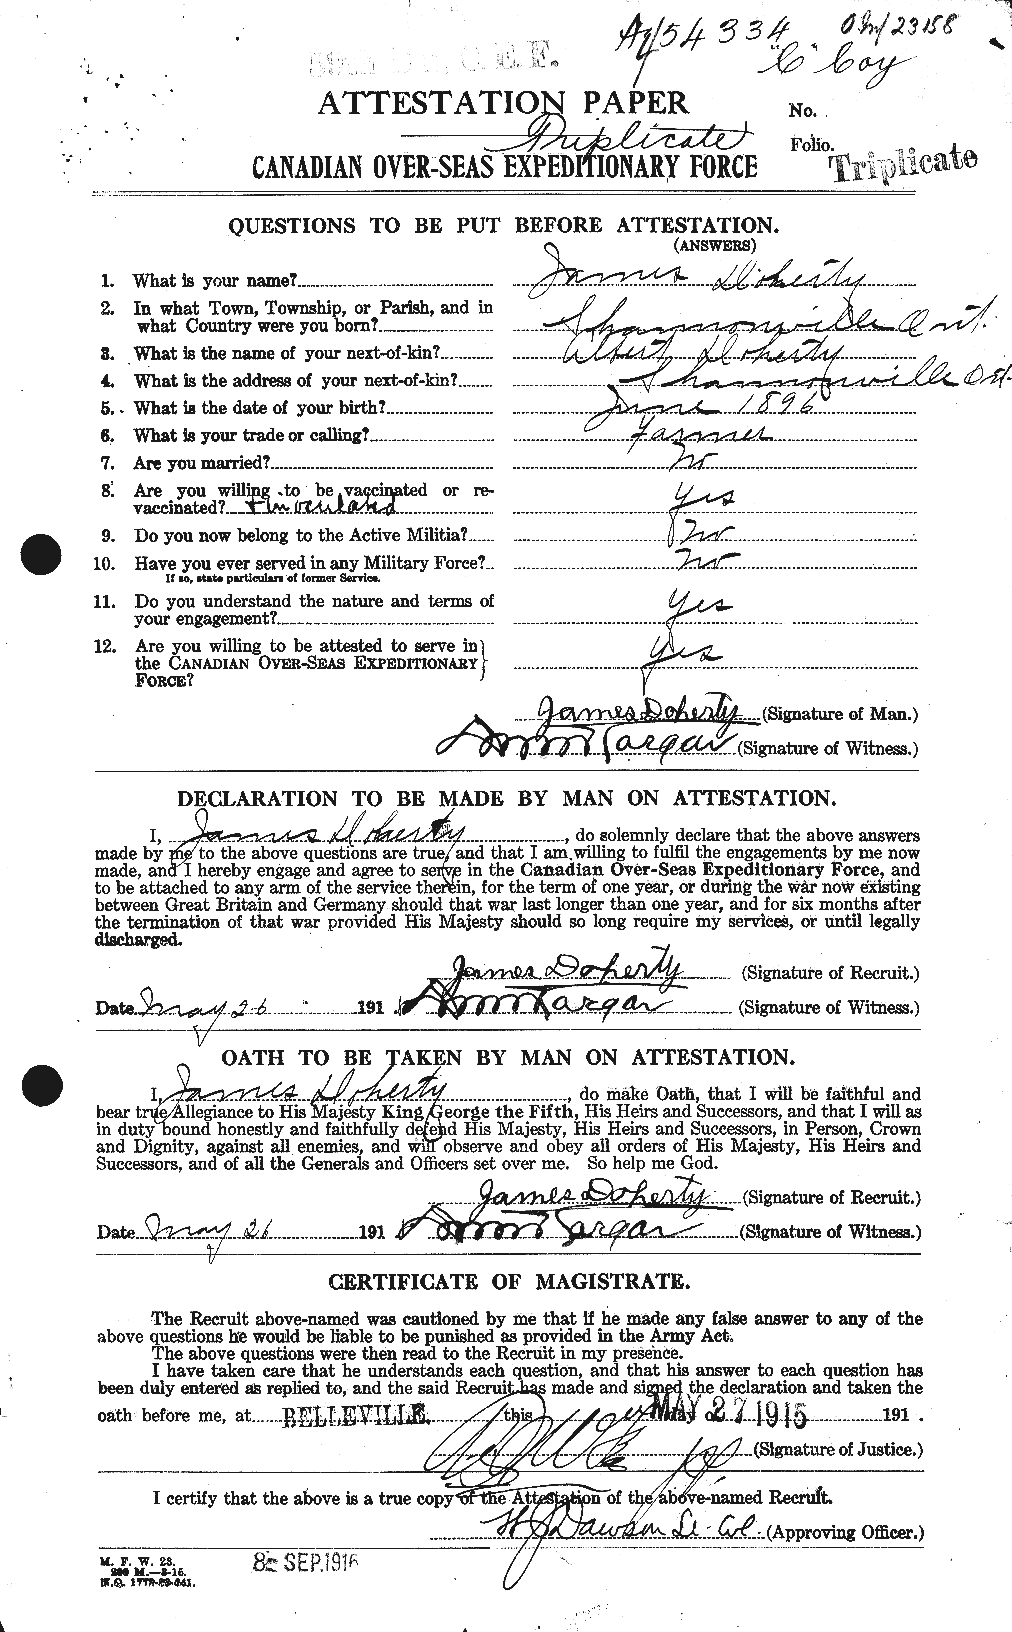 A/54334 O M/23158
"C" Coy
C.E.F.
ATTESTATION PAPER
No.
Triplicate
Folio.
Triplicate
CANADIAN OVER-SEAS EXPEDITIONARY FORCE
QUESTIONS TO BE PUT BEFORE ATTESTATION.
(ANSWERS)
1. What is your name? James Doherty
2. In what Town, Township, or Parish, and in
what Country were you born? Shannonville Ont.
3. What is the name of your next-of-kin? Albert Doherty
4. What is the address of your next-of-kin? Shannonville Ont.
5. What is the date of your birth? June 1896
6. What is your trade or calling? Farmer
7. Are you married? No
8. Are you willing to be vaccinated or re-
vaccinated? Yes
9. Do you now belong to the Active Militia? No
10. Have you ever served in any Military Force? No
If so, state particulars of former Service.
11. Do you understand the nature and terms of
your engagement? Yes
12. Are you willing to be attested to serve in
the CANADIAN OVER-SEAS EXPEDITIONARY
FORCE? Yes
James Doherty (Signature of Man.)
(Signature of Witness.)
DECLARATION TO BE MADE BY MAN ON ATTESTATION.
I, James Doherty, do solemnly declare that the above answers
made by me to the above questions are true, and that I am willing to fulfil the engagements by me now
made, and I hereby engage and agree to serve in the Canadian Over-Seas Expeditionary Force, and
to be attached to any arm of the service therein, for the term of one year, or during the war now existing
between Great Britain and Germany should that war last longer than one year, and for six months after
the termination of that war provided His Majesty should so long require my services, or until legally
discharged.
James Doherty (Signature of Recruit.)
Date May 26 191 (Signature of Witness.)
OATH TO BE TAKEN BY MAN ON ATTESTATION.
I, James Doherty, do make Oath, that I will be faithful and
bear true Allegiance to His Majesty King George the Fifth, His Heirs and Successors, and that I will as
in duty bound honestly and faithfully defend His Majesty, His Heirs and Successors, in Person, Crown
and Dignity, against all enemies, and will observe and obey all orders of His Majesty, His Heirs and
Successors, and of all the Generals and Officers set over me. So help me God.
James Doherty (Signature of Recruit.)
Date May 26 191 (Signature of Witness.)
CERTIFICATE OF MAGISTRATE.
The Recruit above-named was cautioned by me that if he made any false answer to any of the
above questions he would be liable to be punished as provided in the Army Act.
The above questions were then read to the Recruit in my presence.
I have taken care that he understands each question, and that his answer to each question has
been duly entered as replied to, and the said Recruit has made and signed the declaration and taken the
oath before me, at BELLEVILLE. this MAY 27 1915 191 .
(Signature of Justice.)
I certify that the above is a true copy of the Attestation of the above-named Recruit.
Dawson Lt-Col (Approving Officer.)
M. F. W. 23.
200 M.—2-15.
H.Q. 1772-39-841.
SEP. 1916